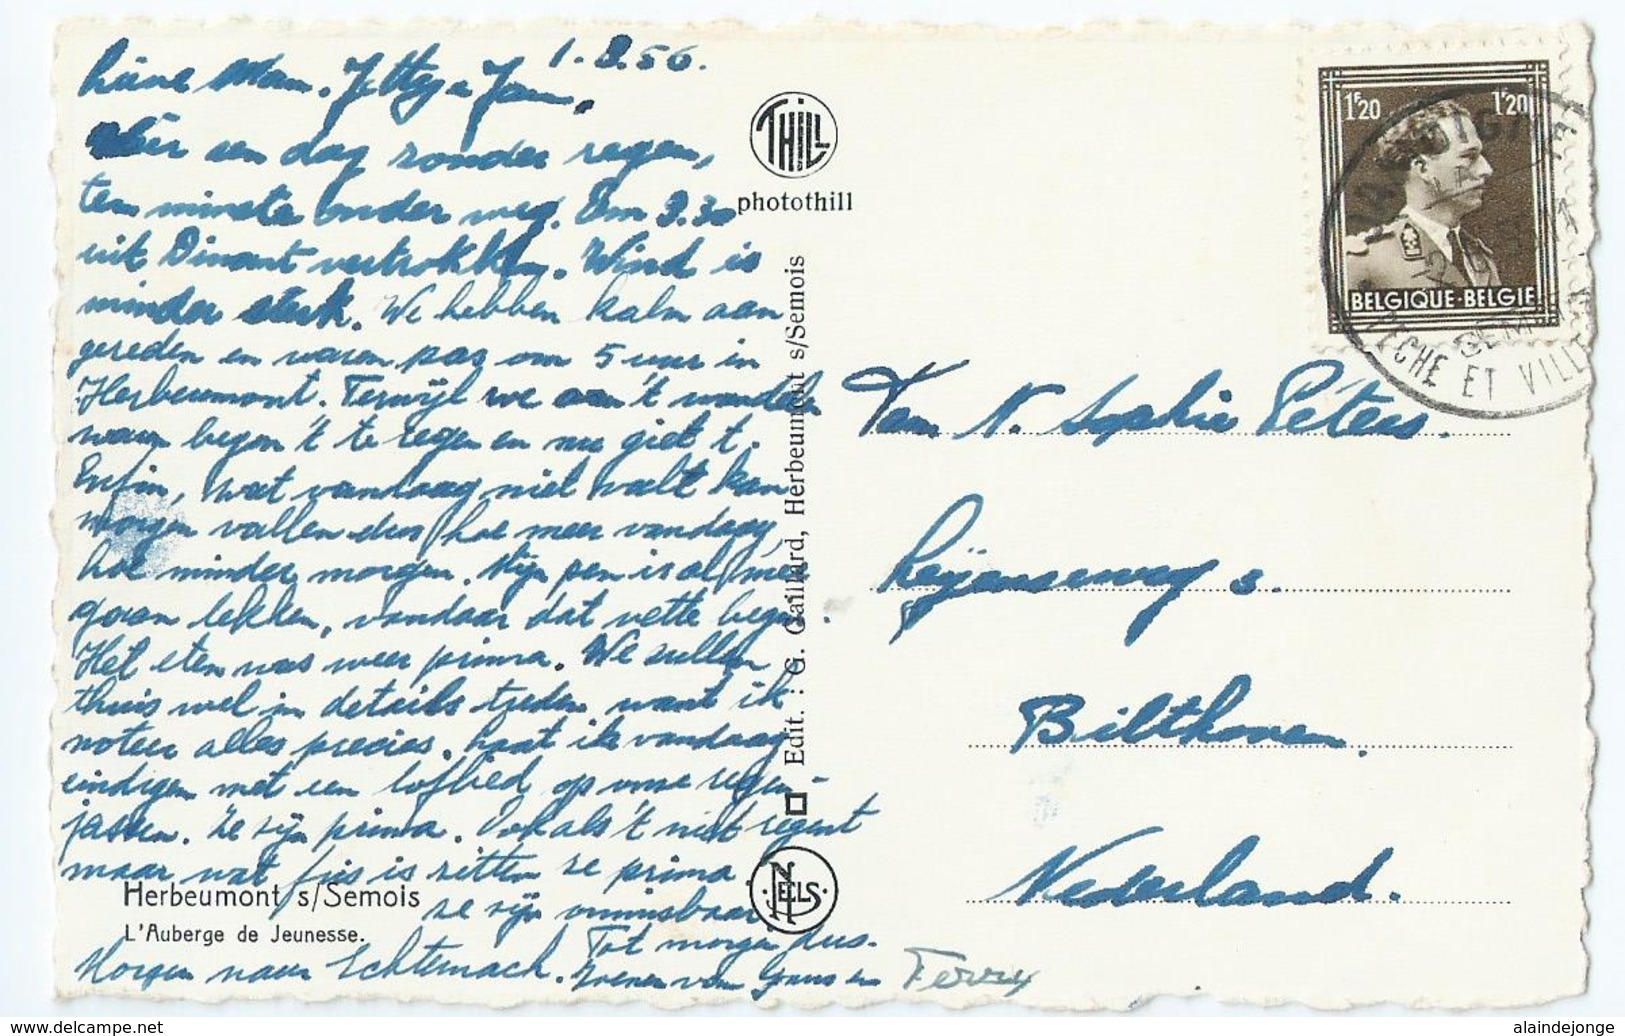 1.8.56.
Lieve Mam. Jetty en Jan,
Weer een dag zonder regen,
ten minste onder weg. Om 9.30
uit Dinant vertrokken. Wind is
minder sterk. We hebben kalm aan
gereden en waren pas om 5 uur in
Herbeumont. Terwijl we aan 't wandelen
waren begon 't te regen en nu giet 't.
Enfin, wat vandaag niet valt kan
morgen vallen dus hoe meer vandaag,
hoe minder morgen. Mijn pen is al
gaan lekken, vandaar dat vette begin.
Het eten was weer prima. We zullen
thuis wel in details treden want ik
noteer alles precies. Laat ik vandaag
eindigen met een loflied op onze regen-
jassen. Ze zijn prima. Ook als 't niet regent
maar wat fris is zitten ze prima.
ze zijn onmisbaar.
Tot morgen dus.
Morgen naar Echternach. Zoenen van Guus en Ferry
Herbeumont s/Semois
L'Auberge de Jeunesse.
THILL
photothill
Edit. : G. Gaillard, Herbeumont s/Semois
NELS
1F20 1F20
BELGIQUE-BELGIE
PECHE ET VILL
Fam N. Sophie Peters.
Leijenseweg 3.
Bilthoven.
Nederland.
www.delcampe.net
alaindejonge